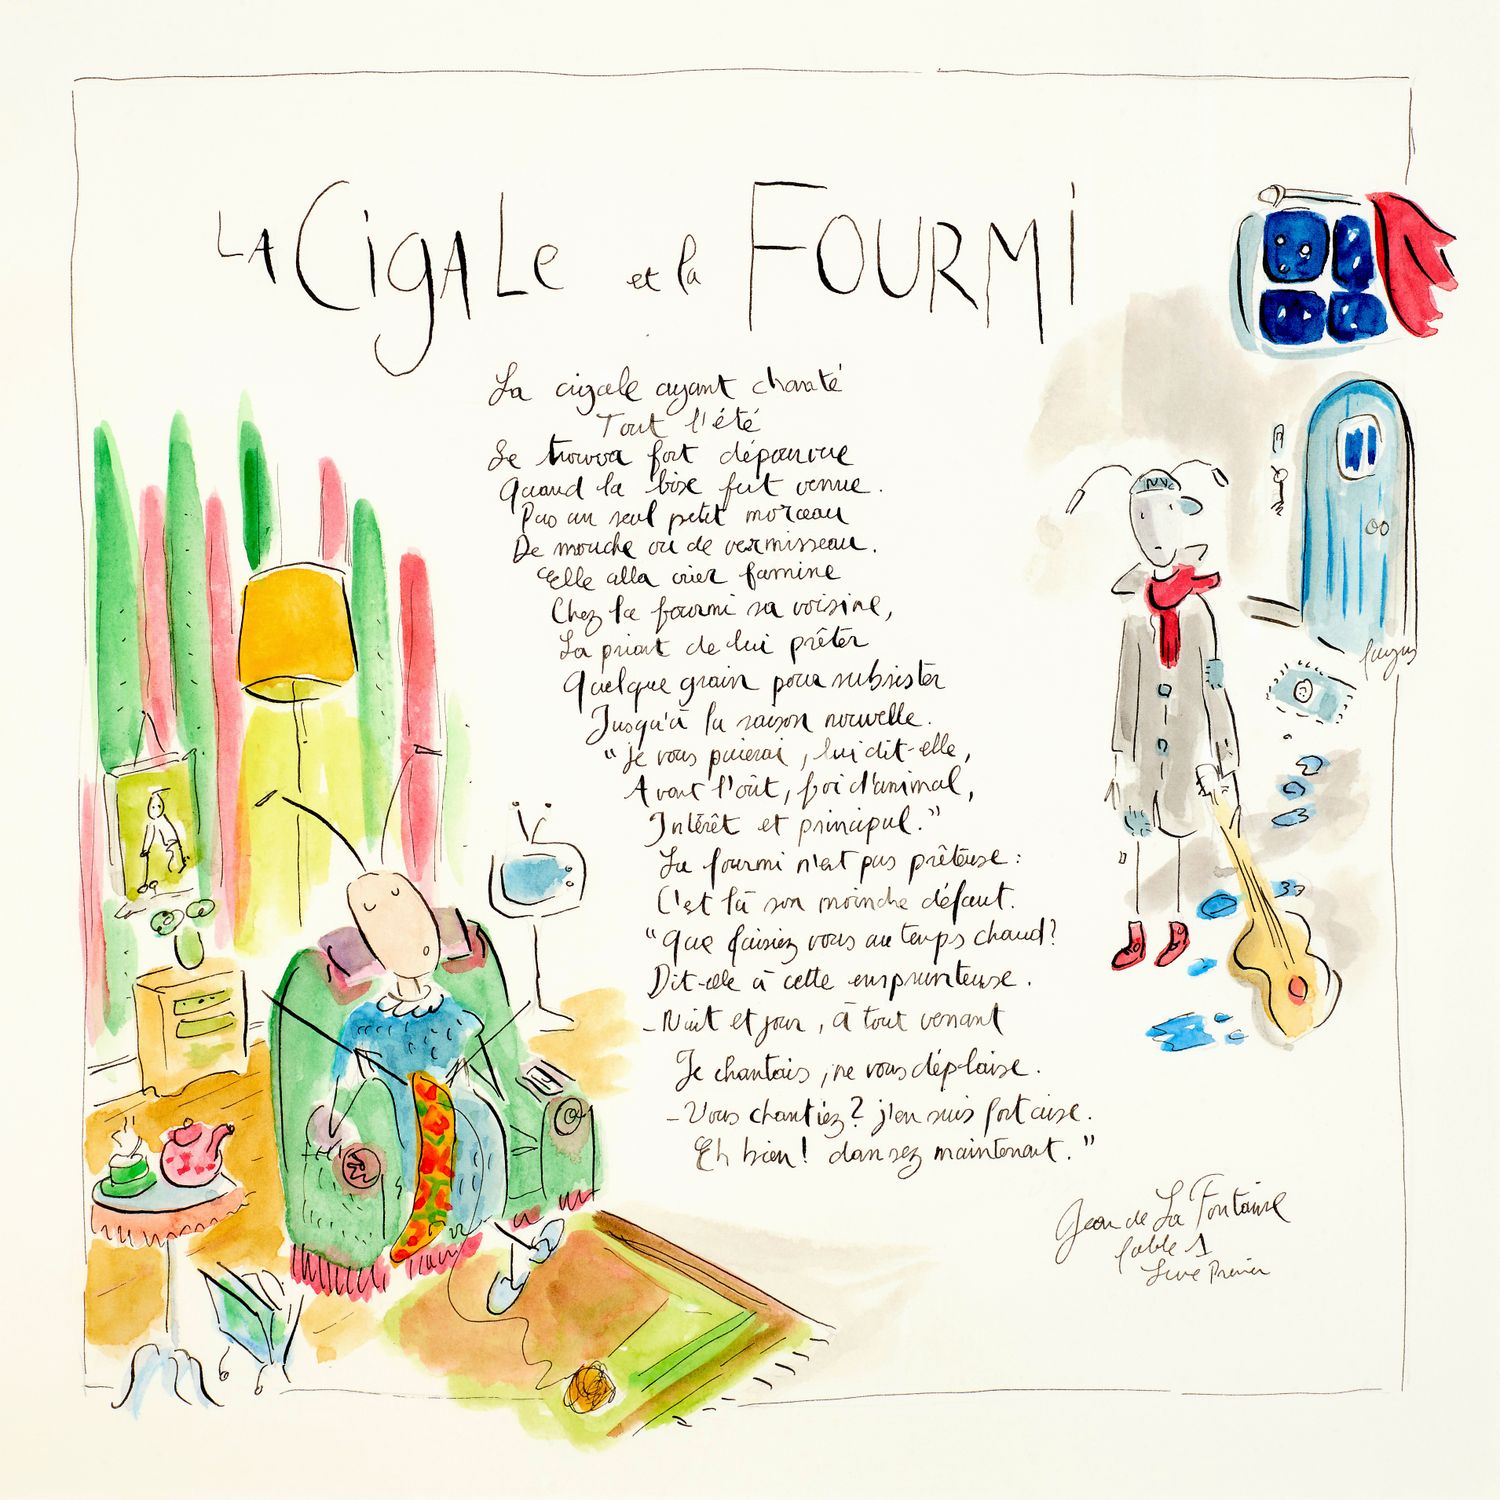 LA CIGALE et la FOURMI
La cigale ayant chanté
Tout l'été
Se trouva fort dépourvue
Quand la bise fut venue.
Pas un seul petit morceau
De mouche ou de vermisseau.
Elle alla crier famine
Chez la fourmi sa voisine,
La priant de lui prêter
Quelque grain pour subsister
Jusqu'à la saison nouvelle.
"Je vous paierai, lui dit-elle,
Avant l'oût, foi d'animal,
Intérêt et principal."
La fourmi n'est pas prêteuse:
C'est là son moindre défaut.
"Que faisiez vous au temps chaud?
Dit-elle à cette emprunteuse.
-Nuit et jour, à tout venant
Je chantais, ne vous déplaise.
-Vous chantiez? j'en suis fort aise.
Eh bien! dansez maintenant."
Jean de La Fontaine
fable 1
Livre Premier
NYC